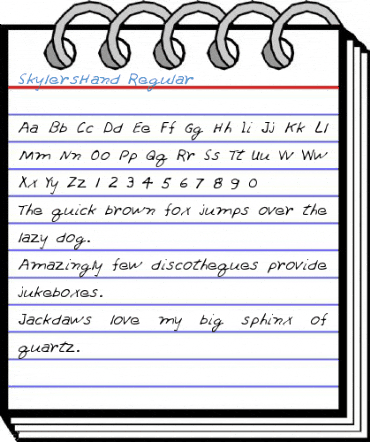 SkylersHand Regular
Aa Bb Cc Dd Ee Ff Gg Hh Ii Jj Kk Ll
Mm Nn Oo Pp Qq Rr Ss Tt Uu Vv Ww
Xx Yy Zz 1 2 3 4 5 6 7 8 9 0
The quick brown fox jumps over the
lazy dog.
Amazingly few discotheques provide
jukeboxes.
Jackdaws love my big sphinx of
quartz.